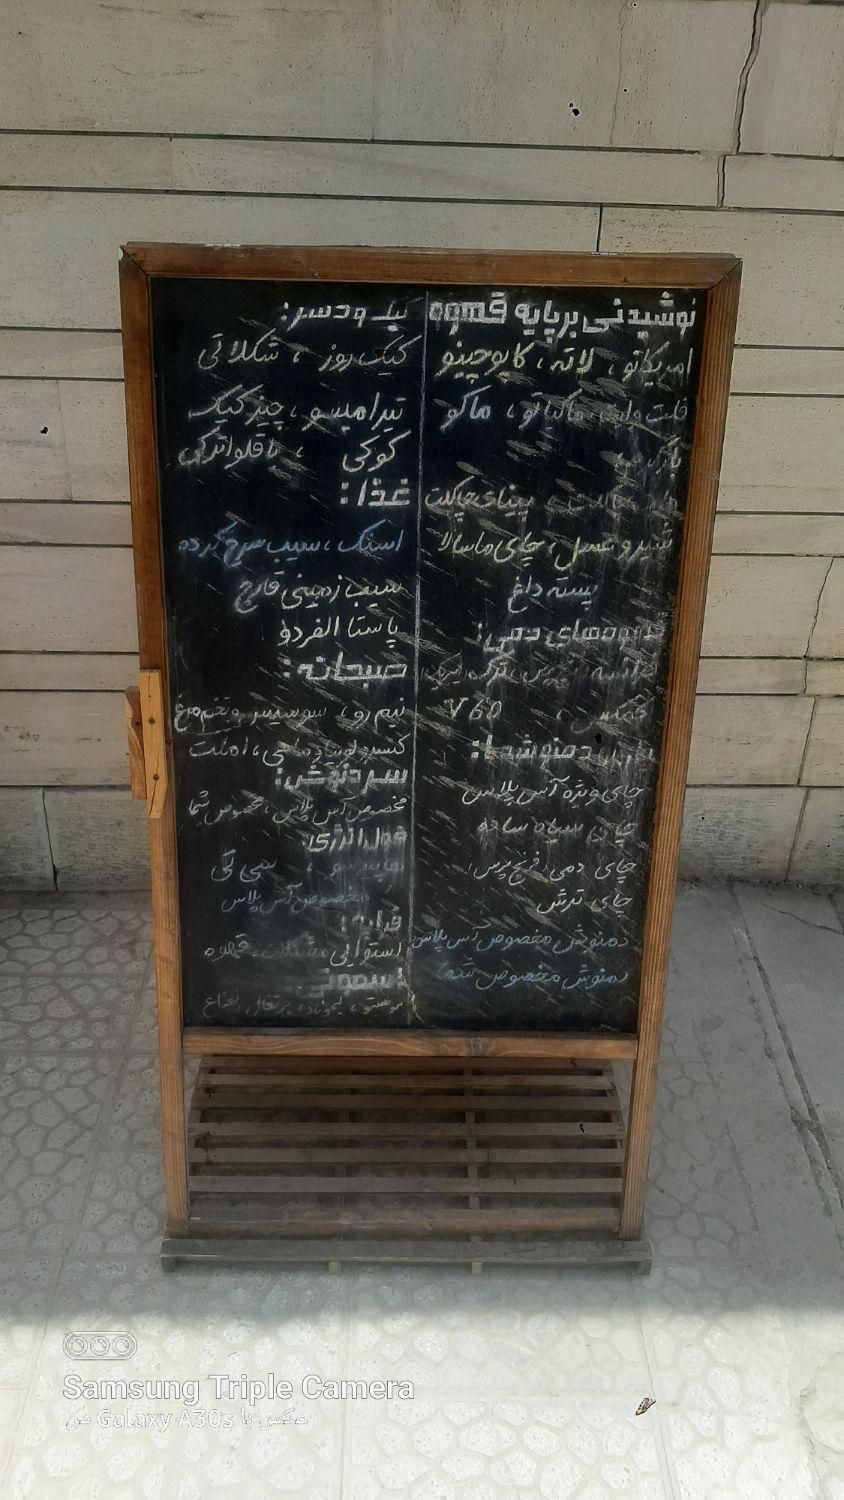 نوشیدنی بر پایه قهوه
امریکانو، لاته، کاپوچینو
فلت وایت، ماکیاتو، ماکو
پینای چاکلت
شیر و عسل، چای ماسالا
پسته داغ
دمی:
V60
دمنوشها:
چای ویژه آس پلاس
چای سیاه ساده
چای دمی فرنچ پرس
چای ترش
دمنوش مخصوص آس پلاس
دمنوش مخصوص شما
کیک و دسر:
کیک روز، شکلاتی
تیرامیسو، چیز کیک
کوکی، باقلوا ترکی
غذا:
اسنک، سیب سرخ کرده
سیب زمینی قارچ
پاستا الفردو
صبحانه:
نیم رو، سوسیس و تخم مرغ
املت
سرد نوش:
مخصوص آس پلاس، مخصوص شما
فول انرژی:
سی تی
مخصوص آس پلاس
قهوه
لیموناد، پرتقال نعناع
Samsung Triple Camera
عکس با Galaxy A30s من